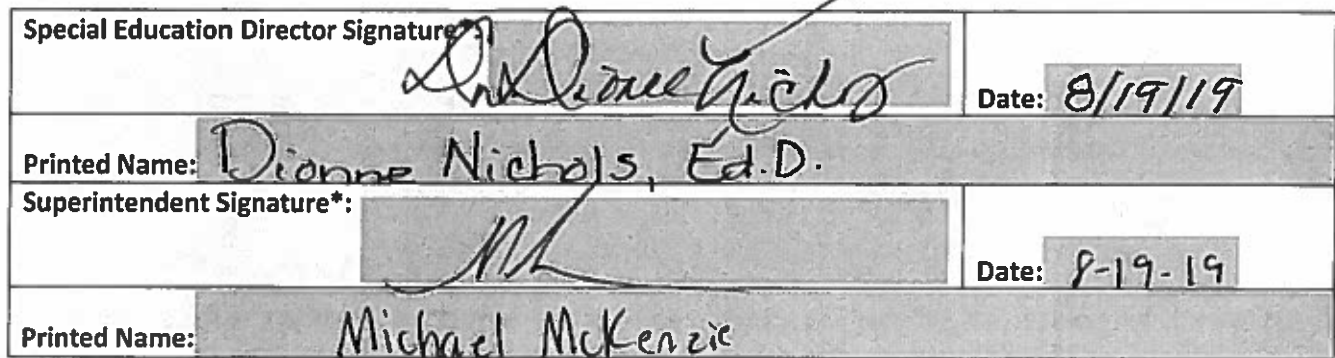 Special Education Director Signature*:
Dr. Dionne Nichols
Date: 8/19/19
Printed Name: Dionne Nichols, Ed.D.
Superintendent Signature*:
Date: 8-19-19
Printed Name: Michael McKenzie